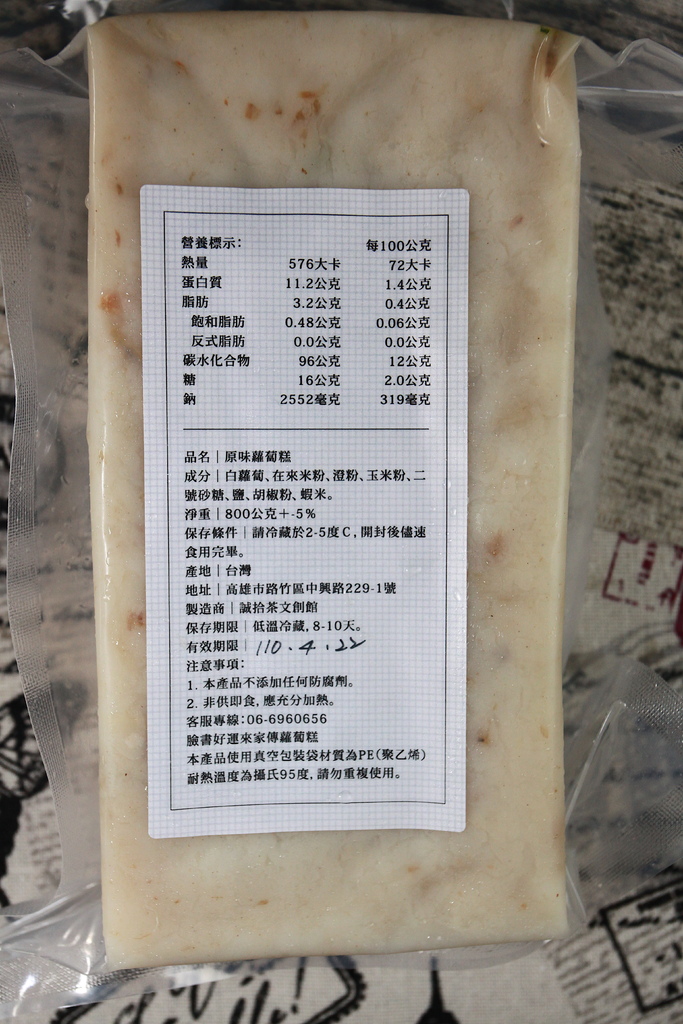 營養標示： 每100公克
熱量 576大卡 72大卡
蛋白質 11.2公克 1.4公克
脂肪 3.2公克 0.4公克
飽和脂肪 0.48公克 0.06公克
反式脂肪 0.0公克 0.0公克
碳水化合物 96公克 12公克
糖 16公克 2.0公克
鈉 2552毫克 319毫克
品名｜原味蘿蔔糕
成分｜白蘿蔔、在來米粉、澄粉、玉米粉、二
號砂糖、鹽、胡椒粉、蝦米。
淨重｜800公克+-5%
保存條件｜請冷藏於2-5度C，開封後儘速
食用完畢。
產地｜台灣
地址｜高雄市路竹區中興路229-1號
製造商｜誠拾茶文創館
保存期限｜低溫冷藏，8-10天。
有效期限｜110.4.22
注意事項：
1. 本產品不添加任何防腐劑。
2. 非供即食，應充分加熱。
客服專線：06-6960656
臉書好運來家傳蘿蔔糕
本產品使用真空包裝袋材質為PE(聚乙烯)
耐熱溫度為攝氏95度，請勿重複使用。